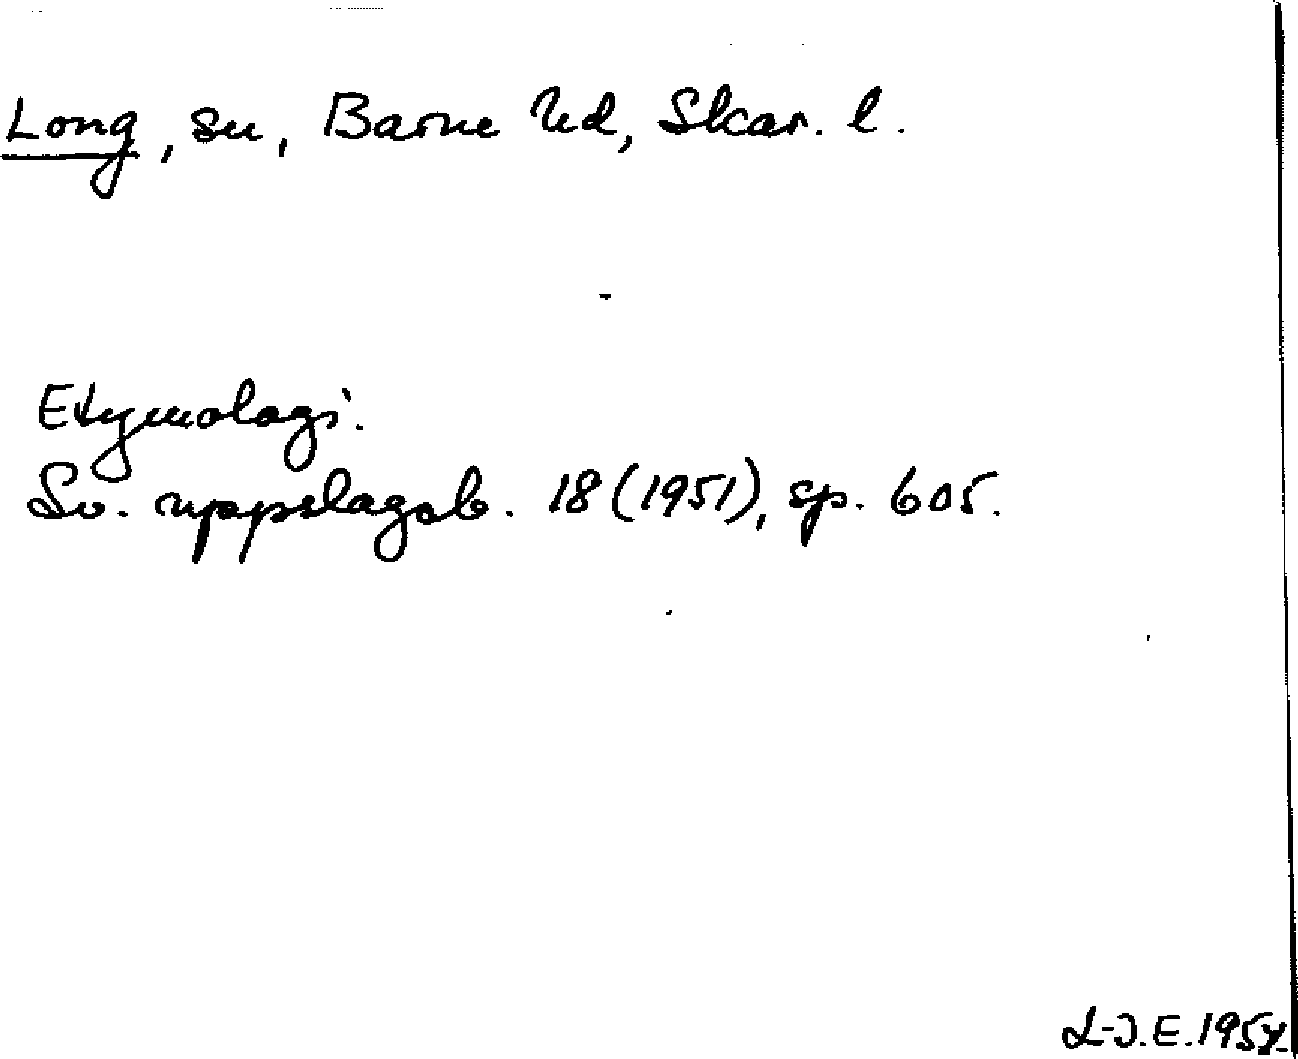 Long, sn, Barne hd, Skar. l.
Etymologi.
Sv. uppslagsb. 18 (1951), sp. 605.
L-J.E. 1954.